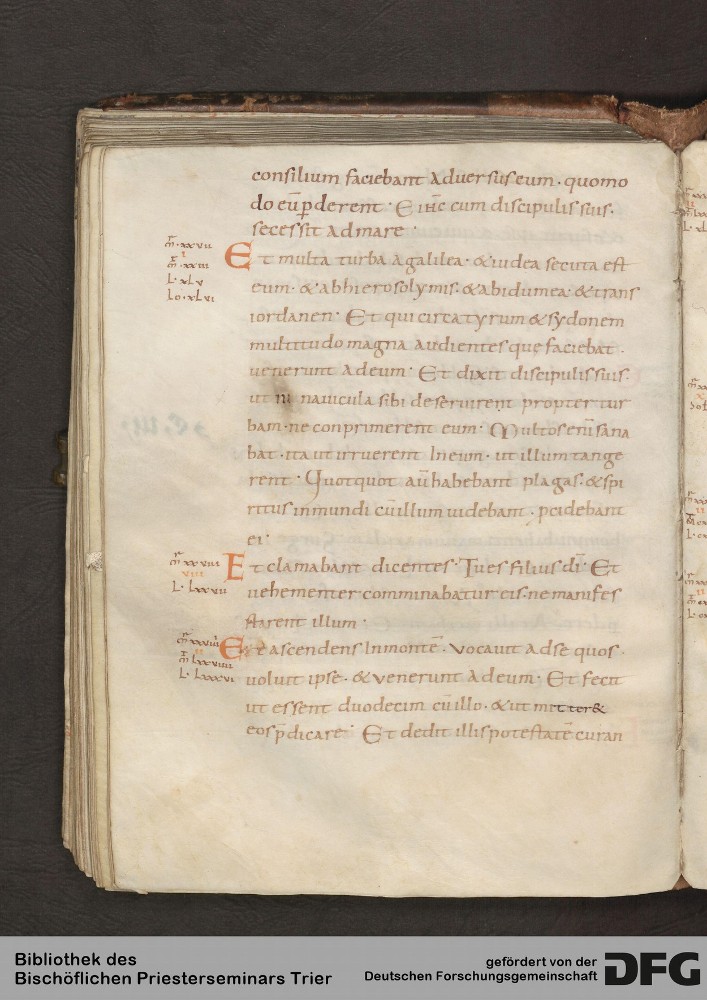 consilium faciebant adversus eum · quomo
do eu̅ p̲derent · E ihc cum discipulis suis ·
secessit ad mare ·
Et multa turba a galilea · & iudea secuta est
eum · & ab hierosolymis · & ab idumea · & trans
iordanen · Et qui circa tyrum & sydonem
multitudo magna audientes quę faciebat ·
uenerunt ad eum · Et dixit discipulis suis ·
ut in nauicula sibi deseruirent propter tur
bam · ne conprimerent eum · Multos eni̅ sana
bat · ita ut irruerent in eum · ut illum tange
rent · Quotquot au̅ habebant plagas · & spi
ritus inmundi cu̅ illum uidebant · pcidebant
ei ·
Et clamabant dicentes · Tu es filius di̅ · Et
uehementer comminabatur eis · ne manifes
tarent illum ·
Et ascendens in monte̅ · vocavit ad se quos ·
uoluit ipse · & venerunt ad eum · Et fecit
ut essent duodecim cu̅ illo · & ut mitter&
eos p̅dicare · Et dedit illis potestate̅ curan
m̅ · xxvii
m̅ · xxiii
L · xLv
Io · xLvi
m̅ xxviii
viii
L · Lxxvii
m̅ xxviiii
m̅ Lxxviiii
L · Lxxxvi
Bibliothek des
Bischöflichen Priesterseminars Trier
gefördert von der
Deutschen Forschungsgemeinschaft
DFG